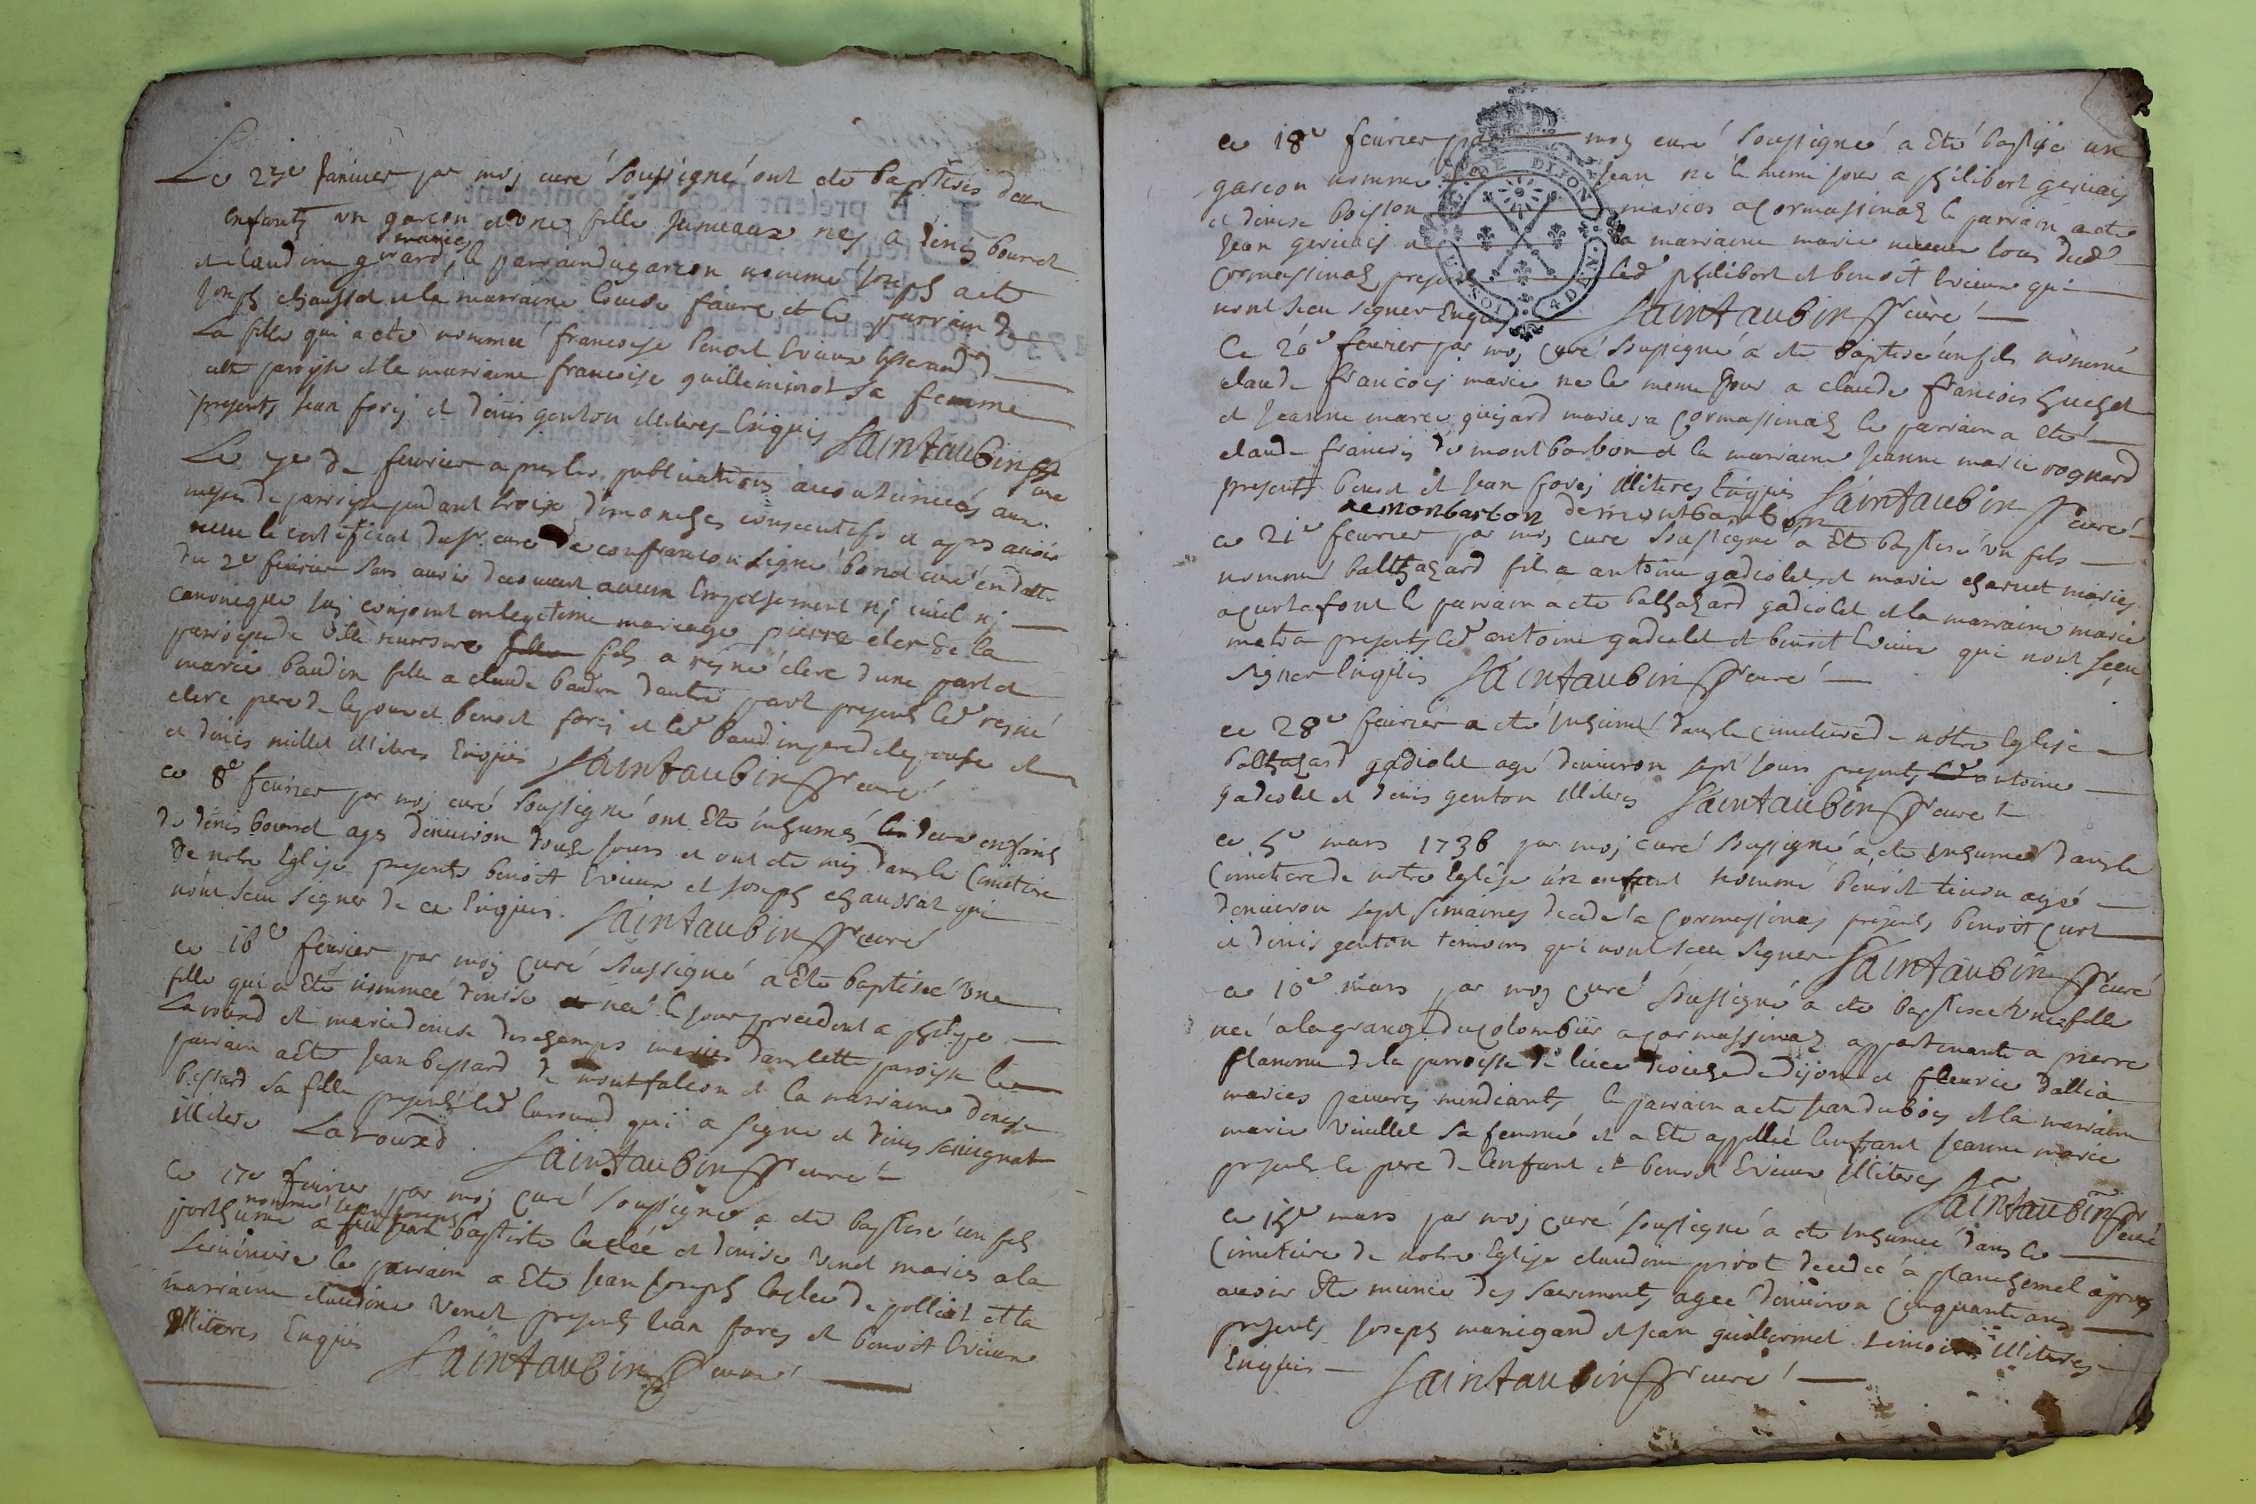 Le 27e Janvier par moy curé soussigné ont eté baptisés deux
enfants un garçon et une fille jumeaux nes a Denis bourcet
et claudine girard mariés, le parrain du garcon nommé Joseph a eté
Joseph chaussat et la marraine louise faure et le parrain de
la fille qui a eté nommeé francoise benoit Evieux tisserand de
cette paroisse et la marraine francoise guilleminot sa femme
presents Jean forey et Denis genton illiteres Enquis Saintaubin ptre curé
Le 7e de fevrier apres les publications accoutumeés aux
messes de paroisse pendant trois dimanches consecutifs et apres avoir
receu le certificat du sr curé de confrancon signé bonet curé en datte
du 2e fevrier sans avoir decouvert aucun Empechement ny civil ny
canonique Jay conjoint en legitime mariage pierre clerc de la
paroisse de ville reversure fils a reiné clerc d'une part et
marie baudin fille a claude baudin dautre part presents led reiné
clerc pere de lepoux et benoit forey et led baudin pere de lepouse et
et Denis millet illiteres Enquis Saintaubin ptre curé
ce 8e fevrier par moy curé soussigné ont eté inhumés les deux enfants
de denis bourcet ages denviron douze jours et ont eté mis dans le cimetiere
de notre Eglise presents benoit Evieux et Joseph chaussat qui
n'ont sceu signer de ce Enquis. Saintaubin ptre curé
ce 16e fevrier par moy curé soussigné a eté baptiseé une
fille qui a eté nommeé denise neé le jour precedent a philipe
Laround et marie denise deschamps mariés dans cette paroisse le
parrain a eté Jean bessard de montfalcon et la marraine denise
bessard sa fille presents led laround qui a signé et Denis sevignat
illitere Laround. Saintaubin ptre curé
ce 17e fevrier par moy curé soussigné a eté baptisé un fils
nommé Jean Joseph
posthume a feu Jean baptiste laclée et denise venet mariés a la
serviniere le parrain a eté Jean Joseph laclée de polliat et la
marraine claudine venet presents Jean forey et benoit Evieux
illiteres Enquis Saintaubin ptre curé
ce 18e fevrier par moy curé soussigné a eté baptisé un
garcon nommé Jean né le meme jour a philibert gervais
et denise boisson mariés a cormassinas le parrain a eté
Jean gervais la marraine marie tous dud
cormassinas presents led philibert et benoit Evieux qui
n'ont sceu signer Enquis Saintaubin ptre curé
Ce 20e fevrier par moy curé soussigné a eté baptisé un fils nommé
claude francois marie ne le meme jour a claude francois huchet
et Jeanne marie guijard mariés a cormassinas le parrain a eté
claude francois de montbarbon et la marraine Jeanne marie rognard
presents benoit et Jean forey illiteres Enquis Saintaubin ptre curé
demonbarbon demontbarbon
ce 21e fevrier par moy curé soussigné a eté baptisé un fils
nommé balthazard fils a antoine gadiolet et marie charvet mariés
a curtafont le parrain a eté balthazard gadiolet et la marraine marie
metra presents led antoine gadiolet et benoit Evieux qui n'ont sceu
signer Enquis Saintaubin ptre curé
ce 28e fevrier a eté Inhumé dans le cimetiere de notre Eglise
balthazard gadiolet agé denviron sept jours presents antoine
gadiolet et denis genton illiteres Saintaubin ptre curé
ce 5e mars 1736 par moy curé soussigné a eté Inhumé dans le
cimetiere de notre Eglise un enfant nommé benoit tienon agé
denviron sept semaines decedé a cormassinas presents benoit curt
et denis genton temoins qui n'ont sceu signer Saintaubin ptre curé
ce 10e mars par moy curé soussigné a eté baptiseé une fille
neé a la grange du colombier a cormassinas appartenante a pierre
flamme de la parroisse de diocese de Dijon et fleurie dallia
mariés pauvres mendiants, le parrain a eté Jean dubois et la marraine
marie vuillet sa femme et a eté appelleé lenfant Jeanne marie
presents le pere de lenfant et benoit Evieux illiteres Saintaubin ptre curé
ce 15e mars par moy curé soussigné a eté Inhumeé dans le
cimetiere de notre Eglise claudine pirot decedeé a planchemel apres
avoir eté munie des sacrements, ageé denviron cinquante ans
presents Joseph manigand et Jean guillermet temoins illiteres
Enquis Saintaubin ptre curé